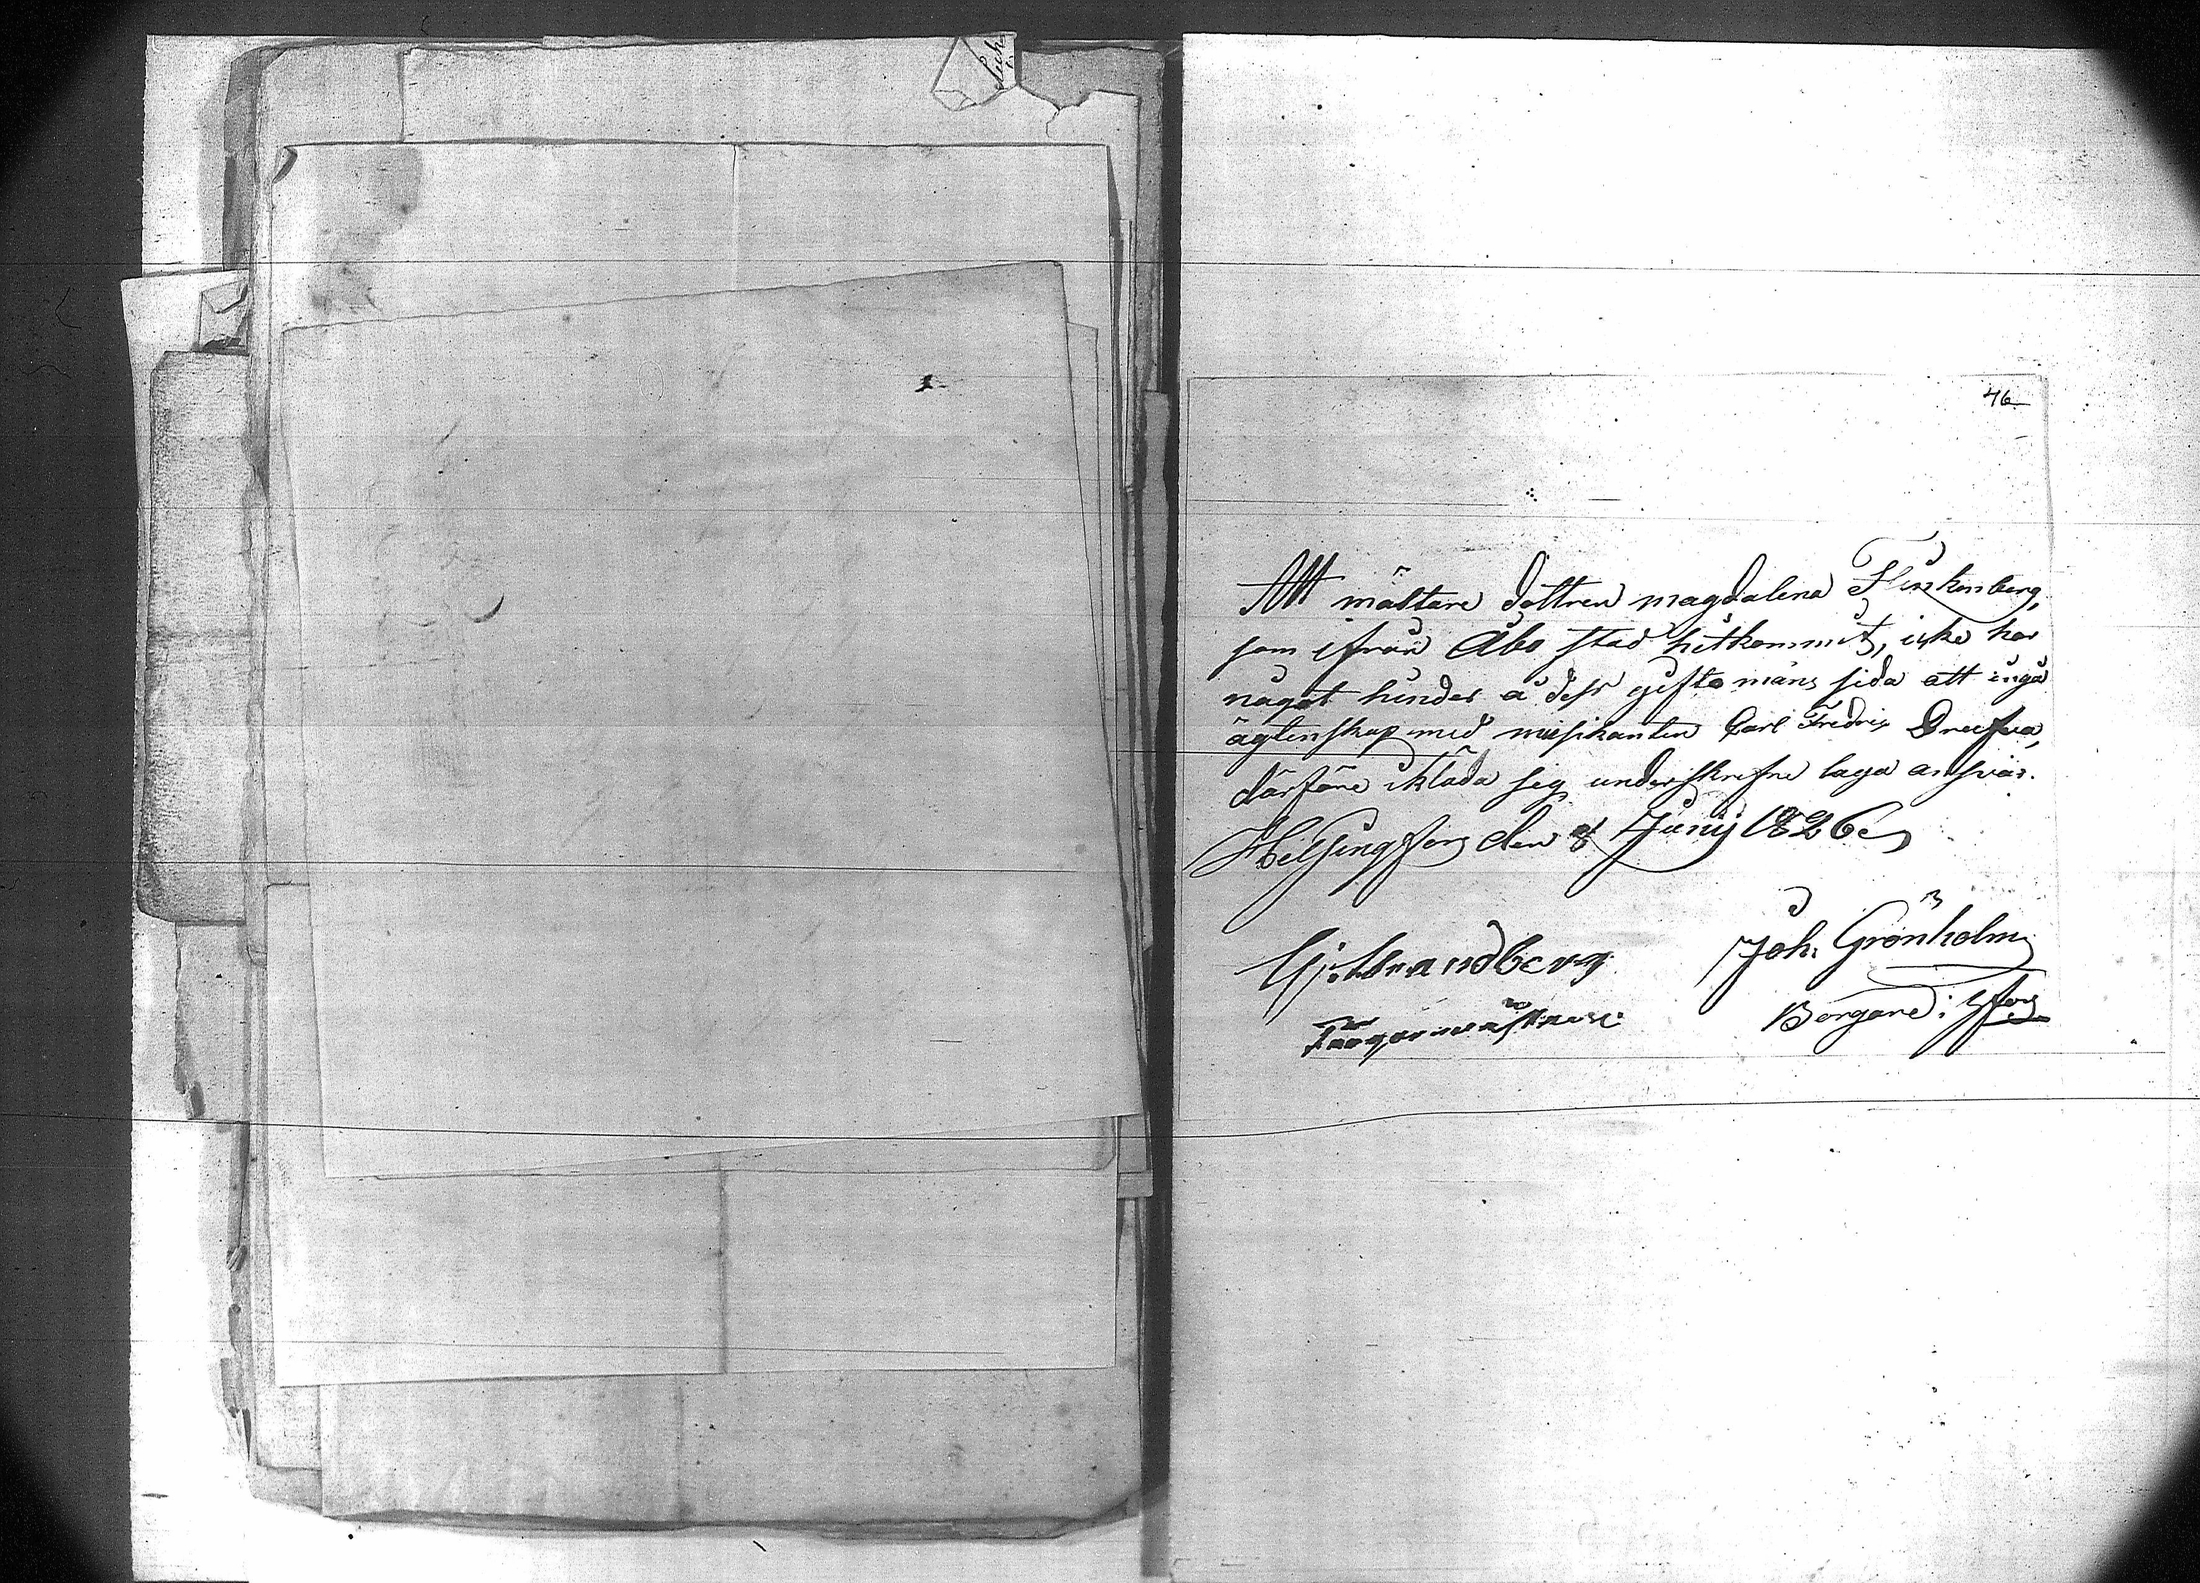 46
Att mältare dottren Magdalena Flinkenberg,
som ifrån Åbo stad hitkommit, icke har
något hinder å dess gifto mans sida att ingå
ägtenskap med musikanten Carl Fredric
därföre ikläda sig underskrefne laga ansvar.
Helsingfors den 8 Junij 1826
Strandberg Joh: Grönholm
Färgaremästare Borgare i Hfors